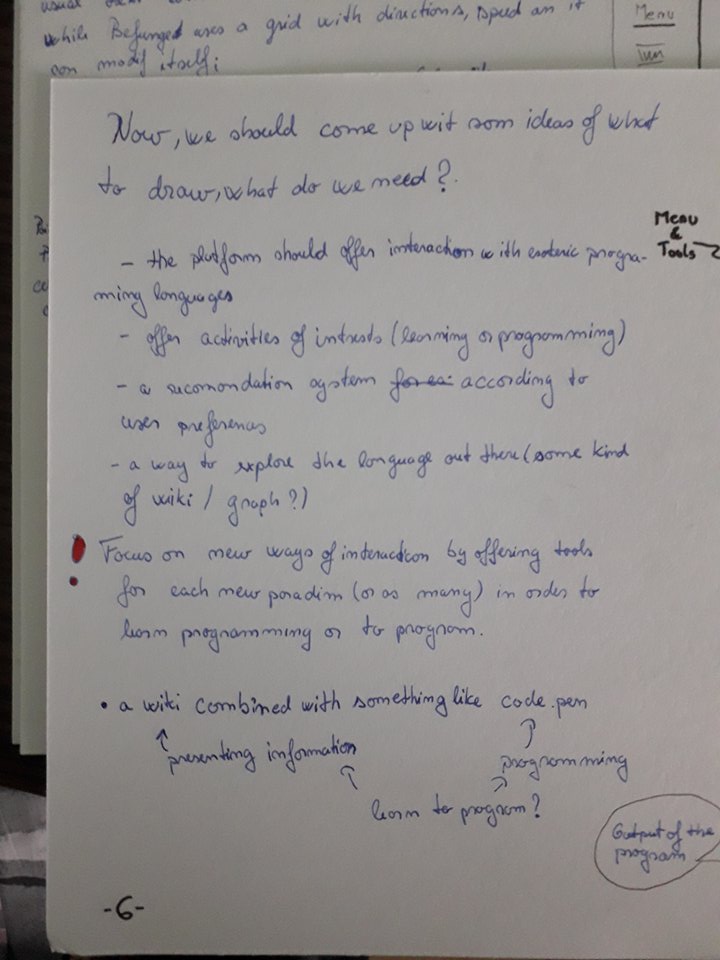 usual
while Befunge uses a grid with directions, speed an it
can modif itself;
Menu
Now, we should come up wit som ideas of what
to draw, what do we need?
Menu
&
Tools
- the platform should offer interaction with esoteric progra-
ming languages
- offer activities of intrests (learning or programming)
- a recomondation system according to
user preferences
- a way to explore the language out there (some kind
of wiki / graph?)
! Focus on new ways of interaction by offering tools
for each new paradim (or as many) in order to
learn programming or to program.
• a wiki combined with something like code.pen
presenting information
programming
learn to program?
Output of the
program
-6-